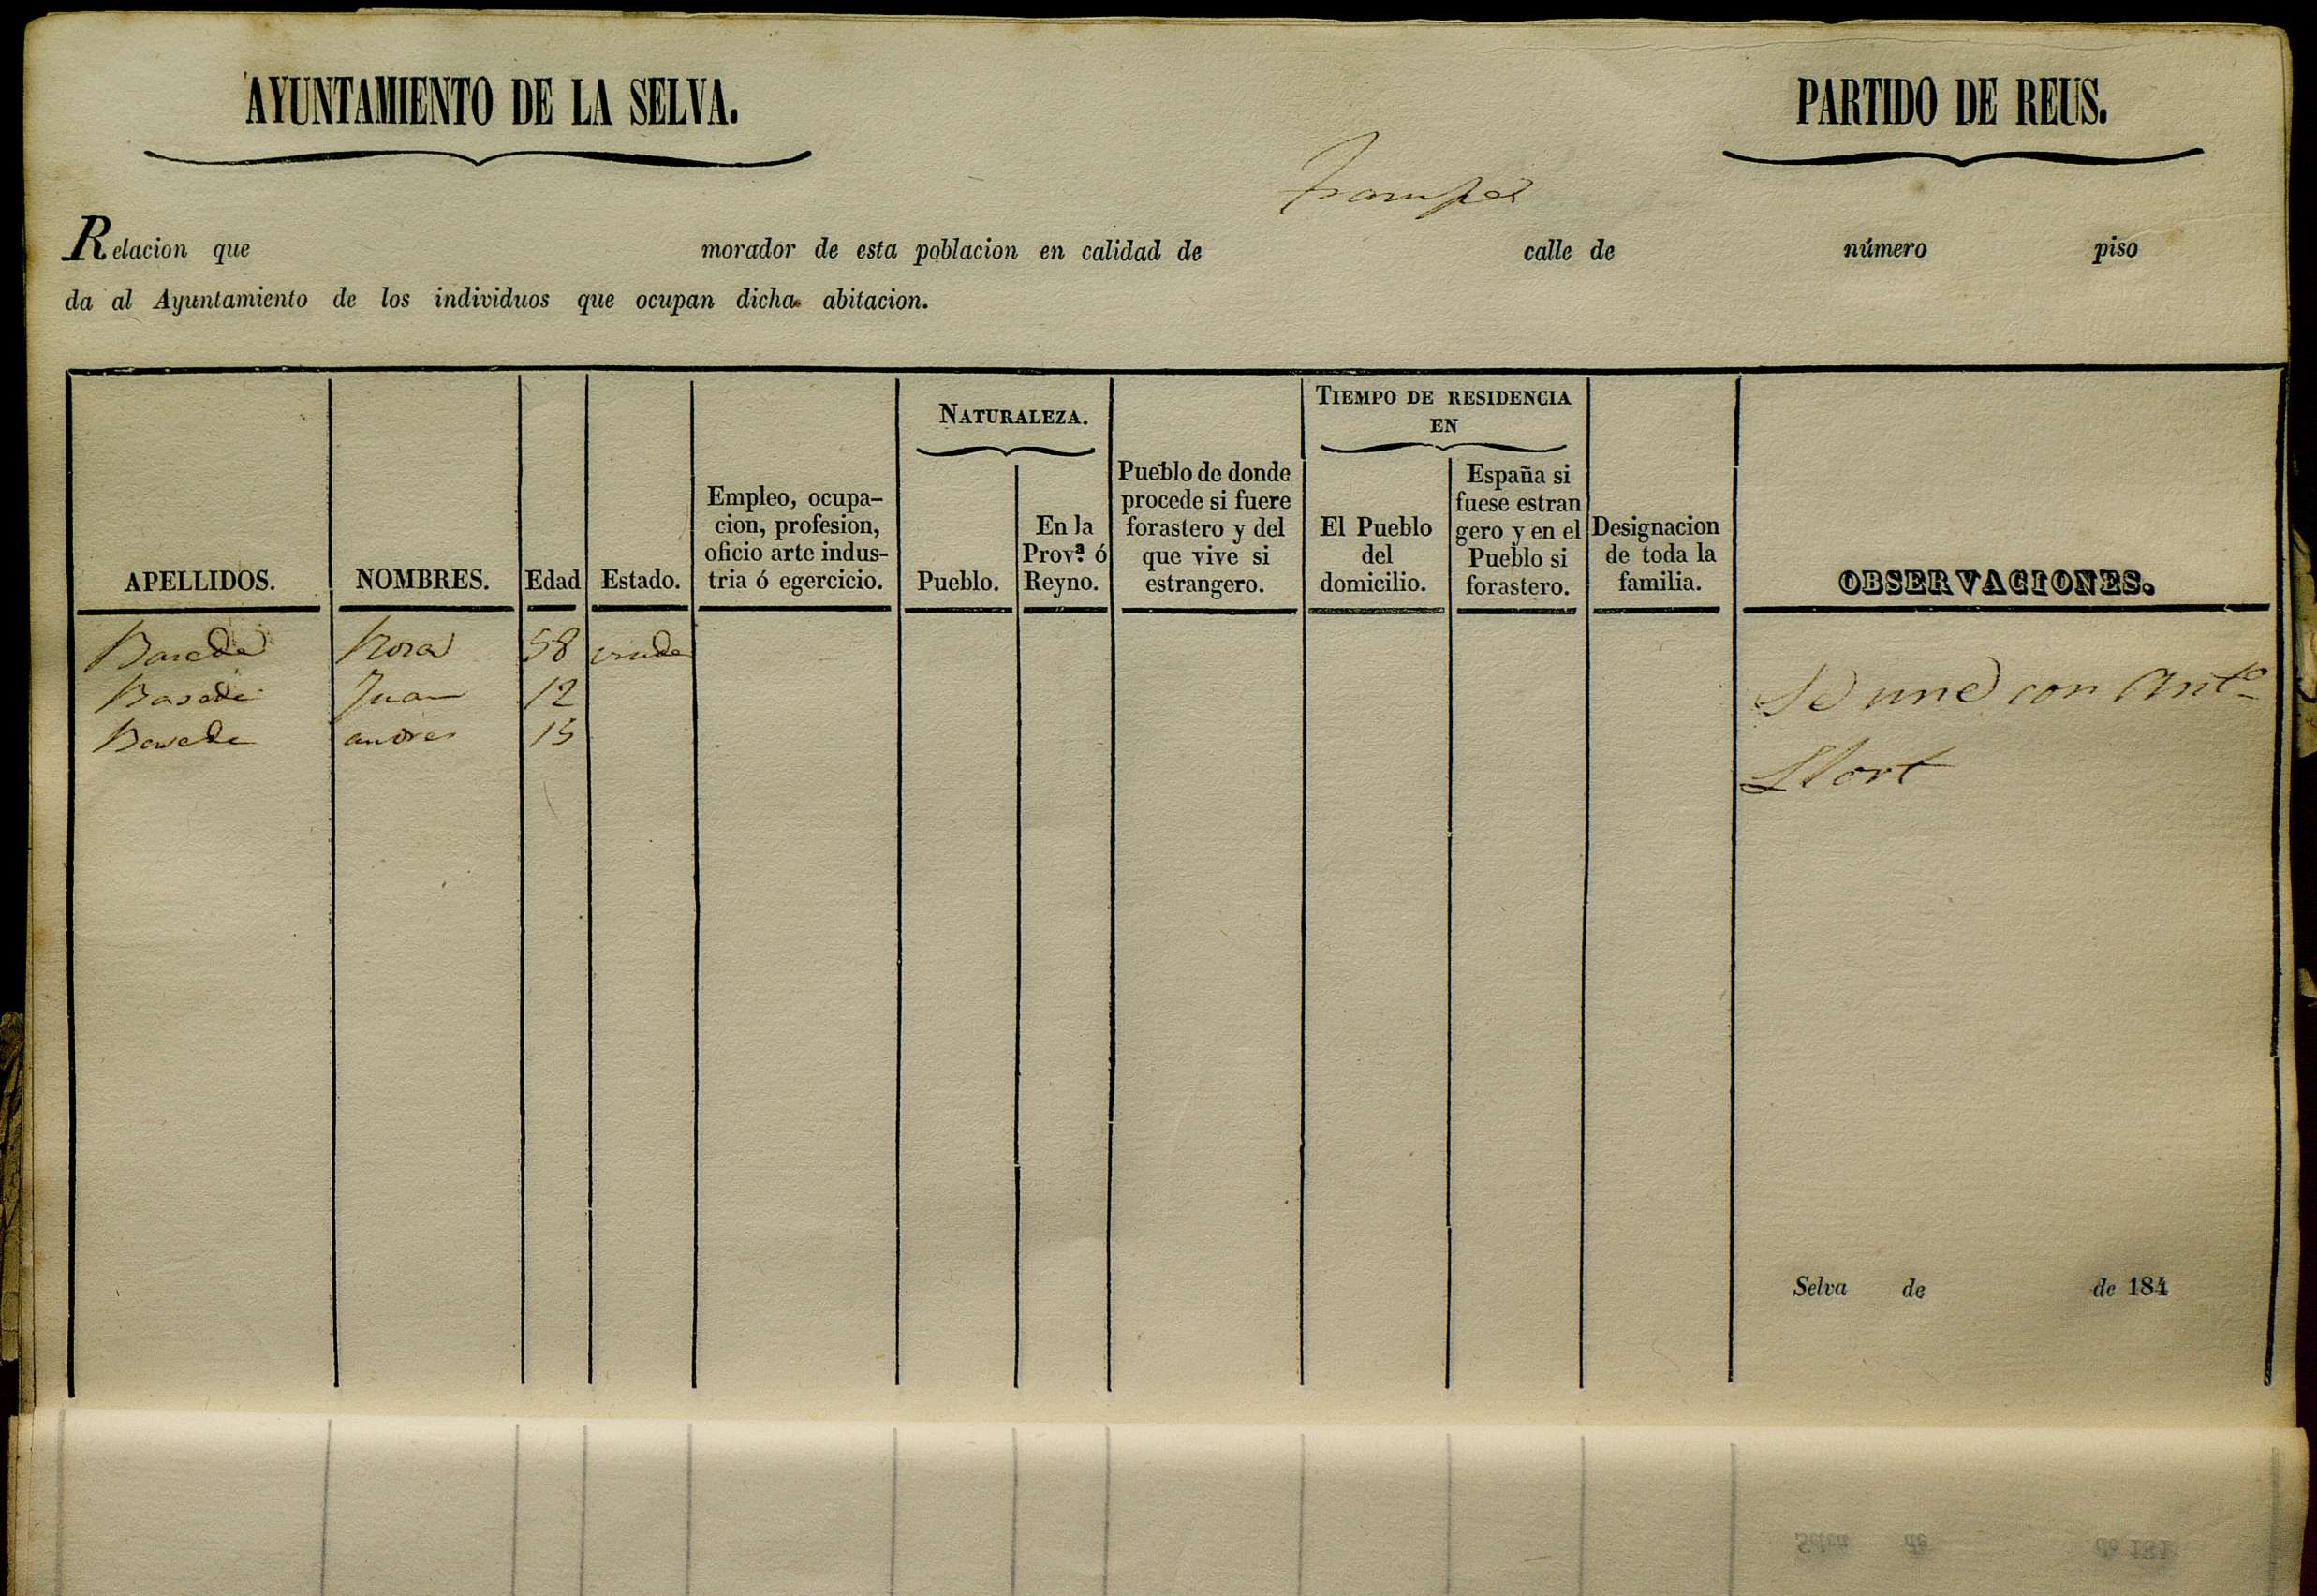 AYUNTAMIENTO DE LA SELVA.
PARTIDO DE REUS.
Relacion que morador de esta poblacion en calidad de calle de número piso
da al Ayuntamiento de los individuos que ocupan dicha abitacion.
APELLIDOS.
NOMBRES.
Edad
Estado.
Empleo, ocupa-
cion, profesion,
oficio arte indus-
tria ó egercicio.
NATURALEZA.
Pueblo.
En la
Prov.ª ó
Reyno.
Pueblo de donde
procede si fuere
forastero y del
que vive si
estrangero.
TIEMPO DE RESIDENCIA
EN
El Pueblo
del
domicilio.
España si
fuese estran
gero y en el
Pueblo si
forastero.
Designacion
de toda la
familia.
OBSERVACIONES.
Rosa 58 viuda
Juan 12
andres 15
Se une con Ant.º
Llort
Selva de de 184